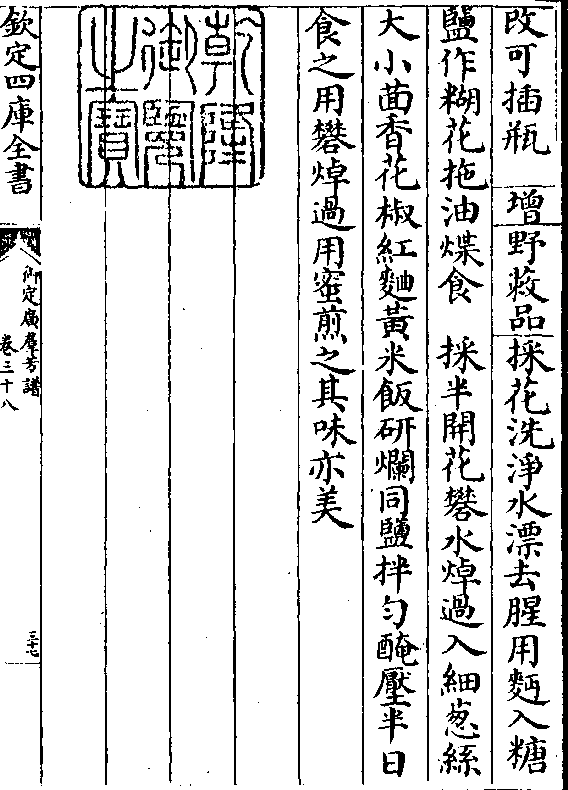 改可插瓶 增野蔌品採花洗淨水漂去腥用麪入糖
鹽作糊花拖油煠食 採半開花礬水焯過入細葱絲
大小茴香花椒紅麯黃米飯研爛同鹽拌勻醃壓半日
食之用礬焯過用蜜煎之其味亦美
乾隆御覽之寶
欽定四庫全書
御定廣羣芳譜
卷三十八
三十七